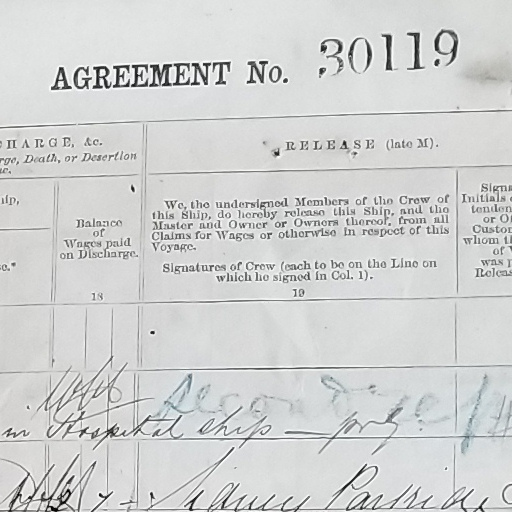 AGREEMENT No. 30119
HARGE, &c.
rge, Death, or Desertion
RELEASE (late M).
Balance
of
Wages paid
on Discharge.
18
We, the undersigned Members of the Crew of
this Ship, do hereby release this Ship, and the
Master and Owner or Owners thereof, from all
Claims for Wages or otherwise in respect of this
Voyage.
Signatures of Crew (each to be on the Line on
which he signed in Col. 1).
19
Signa
Initials o
tenden
or O
Custom
whom th
of V
was p
Releas
in Hospital ship —
Sidney Partridge